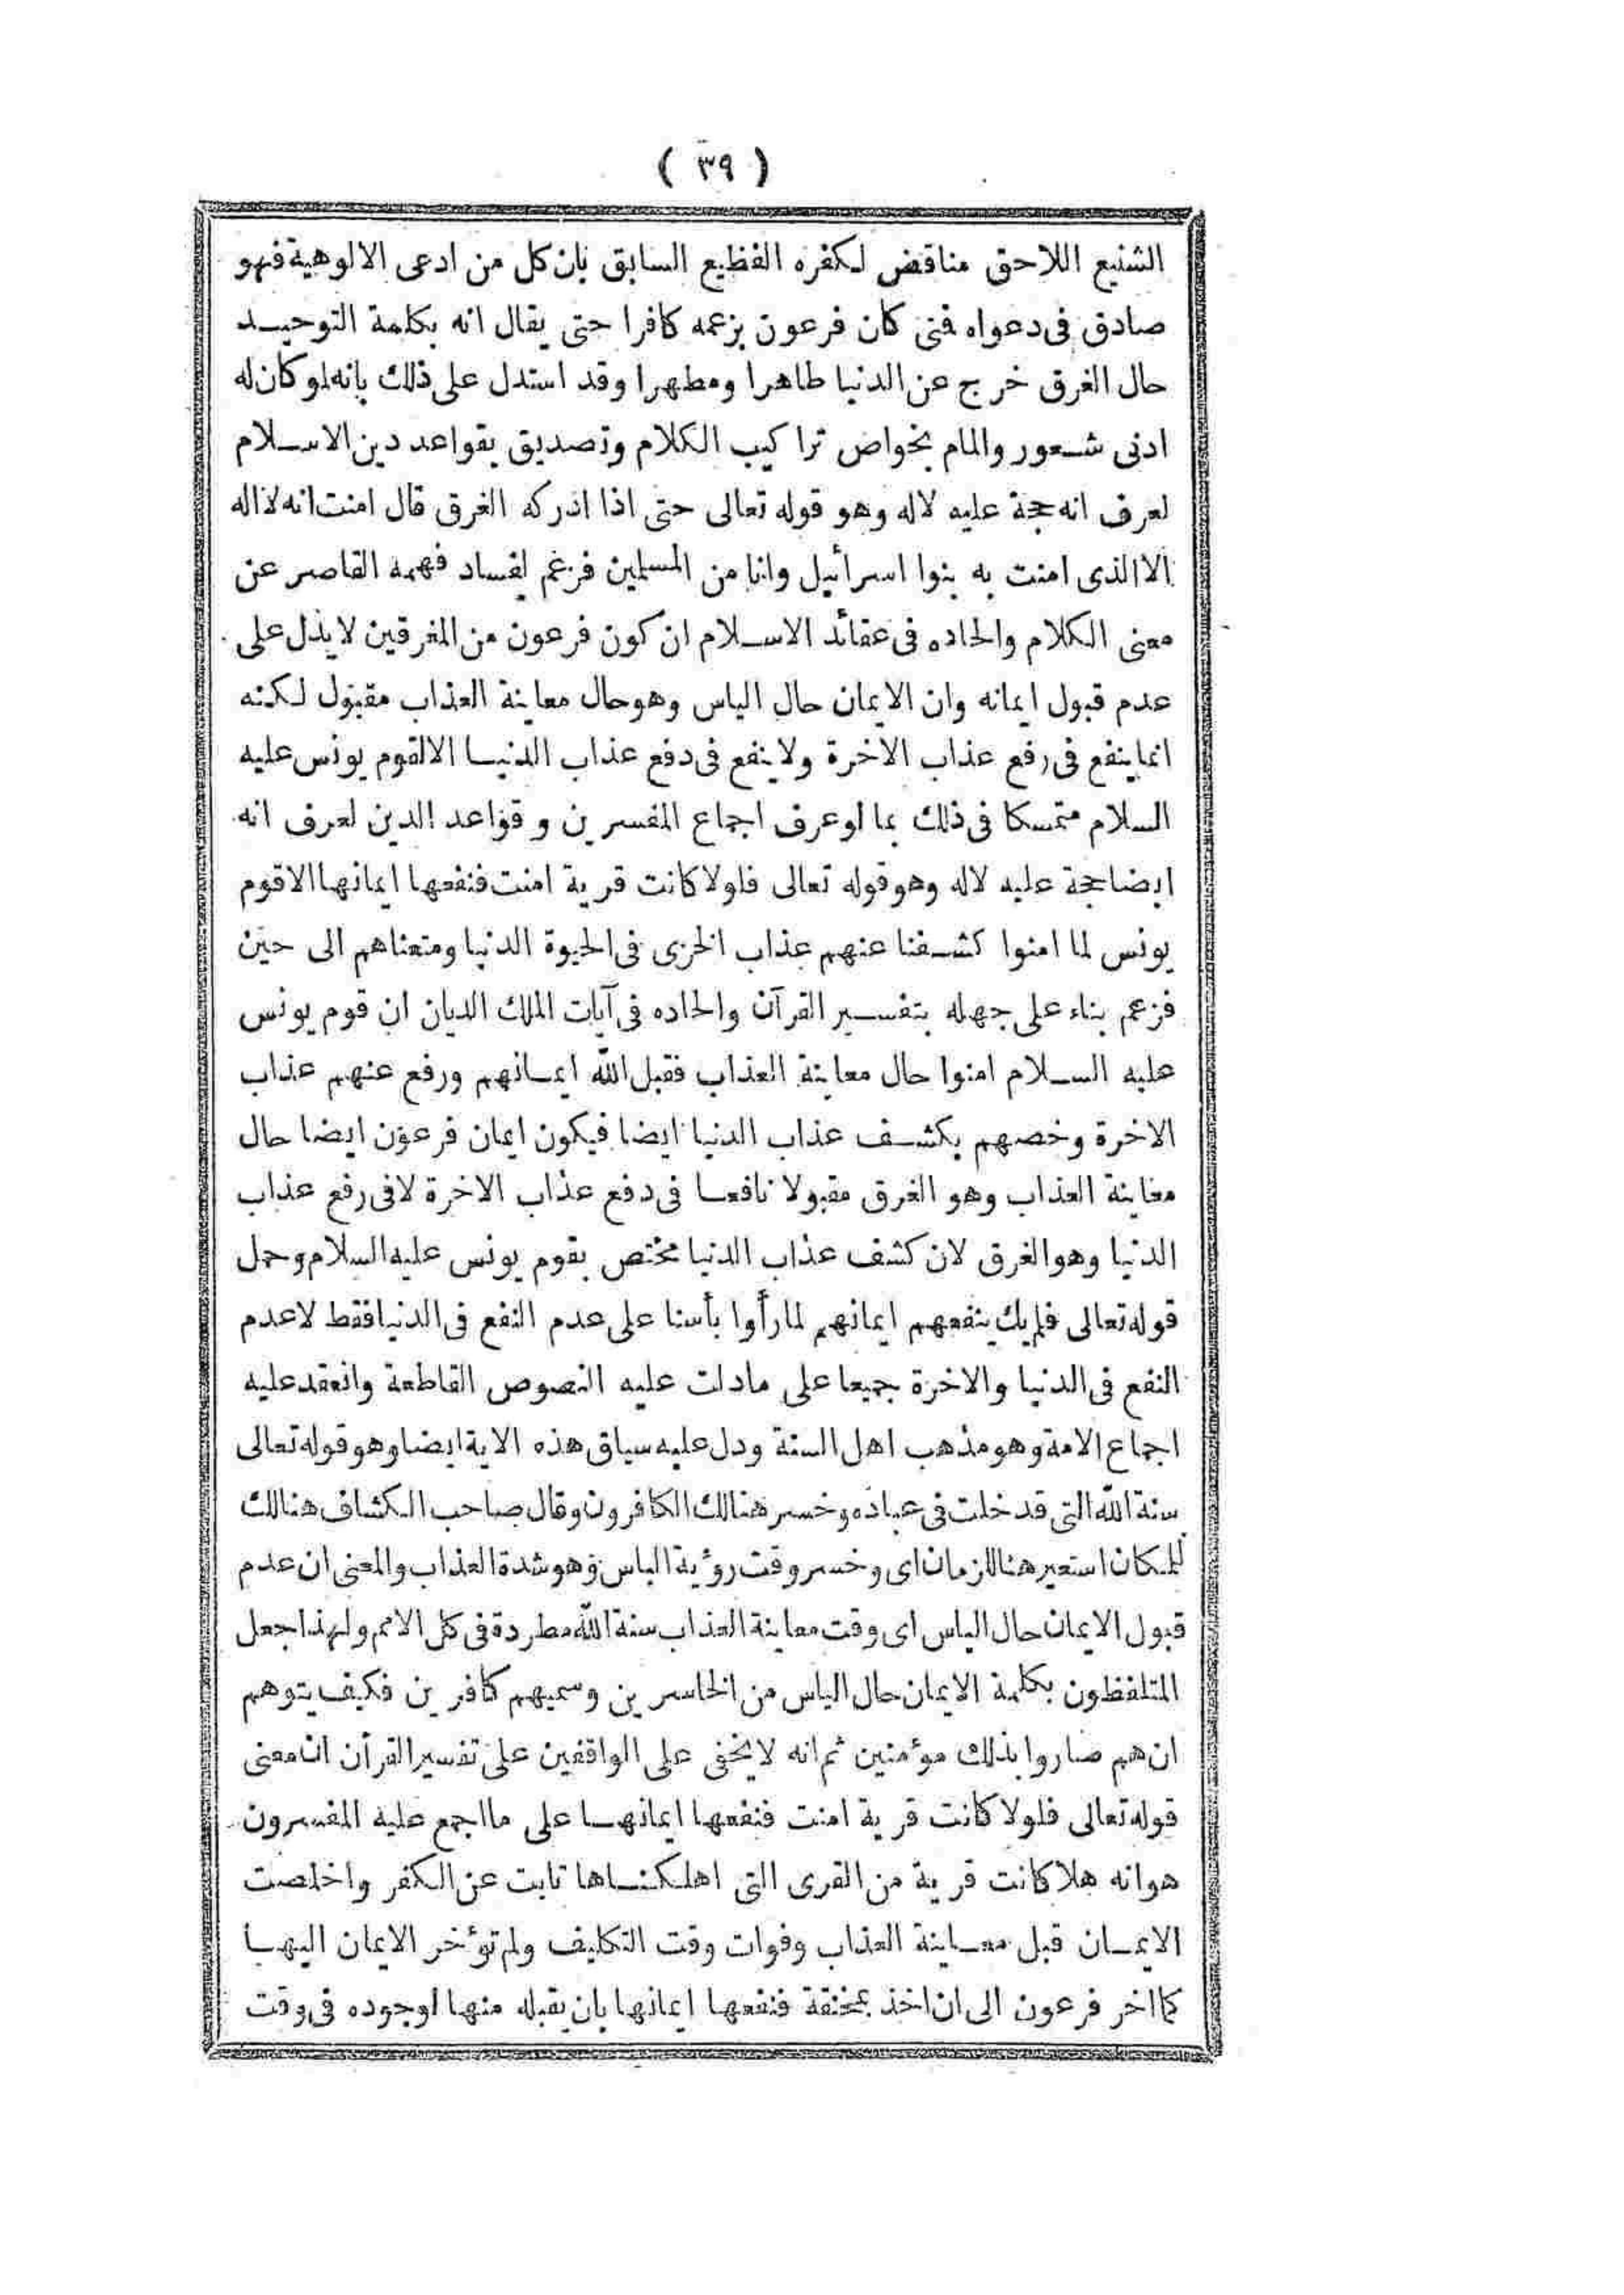 ( ٣٩ )
الشنيع اللاحق مناقض لكفره الفظيع السابق بان كل من ادعى الالوهية فهو
صادق فى دعواه فتى كان فرعون بزعمه كافرا حتى يقال انه بكلمة التوحيد
حال الغرق خرج عن الدنيا طاهرا ومطهرا وقد استدل على ذلك بانه لو كان له
ادنى شعور والمام بخواص تراكيب الكلام وتصديق بقواعد دين الاسلام
لعرف انه حجة عليه لاله وهو قوله تعالى حتى اذا ادركه الغرق قال امنت انه لا اله
الا الذى امنت به بنوا اسرائيل وانا من المسلمين فزعم لفساد فهمه القاصر عن
معنى الكلام والحاده فى عقائد الاسلام ان كون فرعون من المغرقين لا يدل على
عدم قبول ايمانه وان الايمان حال الياس وهو حال معاينة العذاب مقبول لكنه
انما ينفع فى رفع عذاب الاخرة ولا ينفع فى دفع عذاب الدنيا الا لقوم يونس عليه
السلام متمسكا فى ذلك بما لو عرف اجماع المفسرين وقواعد الدين لعرف انه
ايضا حجة عليه لاله وهو قوله تعالى فلولا كانت قرية امنت فنفعها ايمانها الا قوم
يونس لما امنوا كشفنا عنهم عذاب الخزى فى الحيوة الدنيا ومتعناهم الى حين
فزعم بناء على جهله بتفسير القرآن والحاده فى آيات الملك الديان ان قوم يونس
عليه السلام امنوا حال معاينة العذاب فقبل الله ايمانهم ورفع عنهم عذاب
الاخرة وخصهم بكشف عذاب الدنيا ايضا فيكون ايمان فرعون ايضا حال
معاينة العذاب وهو الغرق مقبولا نافعا فى دفع عذاب الاخرة لا فى رفع عذاب
الدنيا وهو الغرق لان كشف عذاب الدنيا مختص بقوم يونس عليه السلام وحمل
قوله تعالى فلم يك ينفعهم ايمانهم لما رأوا بأسنا على عدم النفع فى الدنيا فقط لا عدم
النفع فى الدنيا والاخرة جميعا على ما دلت عليه النصوص القاطعة وانعقد عليه
اجماع الامة وهو مذهب اهل السنة ودل عليه سياق هذه الاية ايضا وهو قوله تعالى
سنة الله التى قد خلت فى عباده وخسر هنالك الكافرون وقال صاحب الكشاف هنالك
للمكان استعير هنا للزمان اى وخسر وقت رؤية الباس وهو شدة العذاب والمعنى ان عدم
قبول الايمان حال الياس اى وقت معاينة العذاب سنة الله مطردة فى كل الامم ولهذا جعل
المتلفظون بكلمة الايمان حال الياس من الخاسرين وسميهم كافرين فكيف يتوهم
ان هم صاروا بذلك مؤمنين ثم انه لا يخفى على الواقفين على تفسير القرأن ان معنى
قوله تعالى فلولا كانت قرية امنت فنفعها ايمانها على ما اجمع عليه المفسرون
هو انه هلا كانت قرية من القرى التى اهلكناها تابت عن الكفر واخلصت
الايمان قبل معاينة العذاب وفوات وقت التكليف ولم تؤخر الايمان اليها
كما اخر فرعون الى ان اخذ بمخنقة فنفعها ايمانها بان يقبله منها لوجوده فى وقت